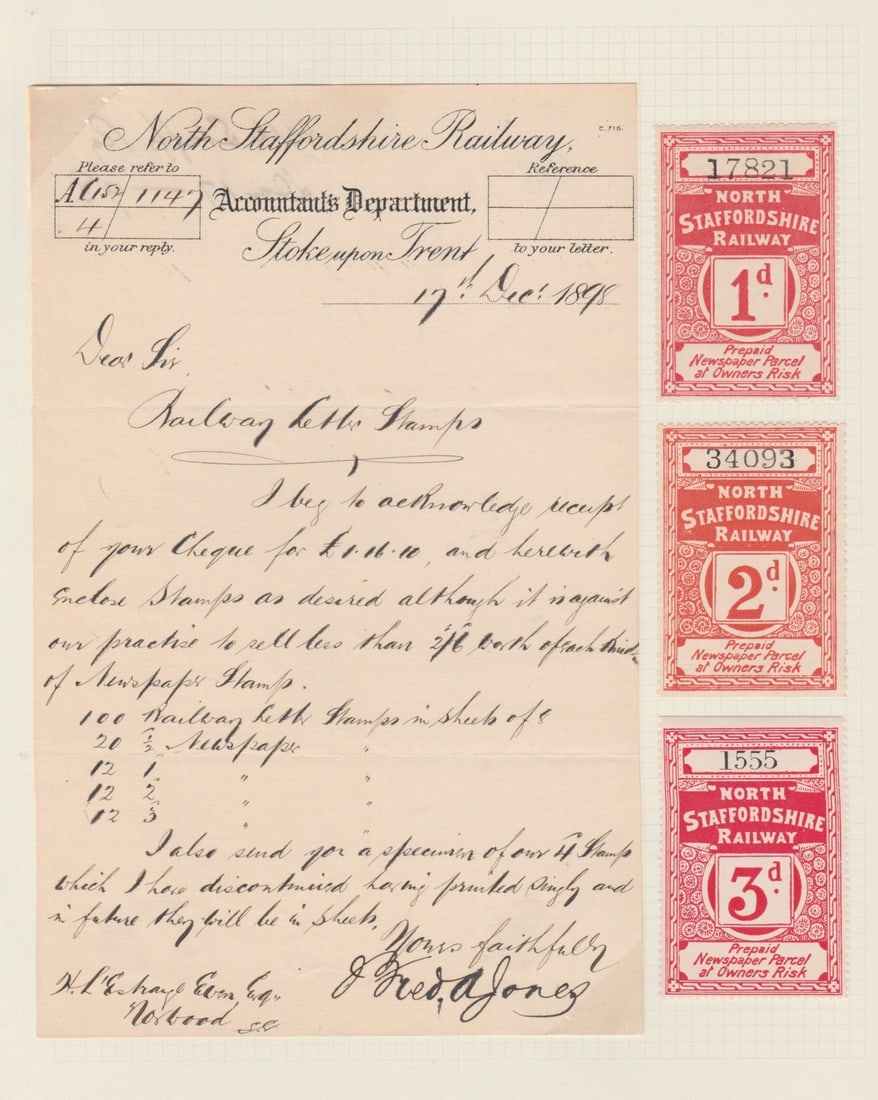 North Staffordshire Railway,
C.716.
Please refer to
1147
4
in your reply.
Accountant's Department,
Stoke upon Trent
Reference
to your letter.
17th Decr. 1898
Dear Sir,
Railway Letter Stamps
I beg to acknowledge receipt
of your Cheque for £1.16.10, and herewith
Enclose Stamps as desired although it is against
our practise to sell less than 2/6 worth of each kind
of Newspaper Stamp.
100 Railway Letter Stamps in sheets of 8
20 ½ Newspaper "
12 1 " "
12 2 " "
12 3 " "
I also send you a specimen of our 4d Stamp
which I have discontinued having printed singly and
in future they will be in sheets,
Yours faithfully
Fred. A Jones
H. L'Estrange Ewen, Esq.,
Norwood S.E.
17821
NORTH
STAFFORDSHIRE
RAILWAY
1d.
Prepaid
Newspaper Parcel
at Owners Risk
34093
NORTH
STAFFORDSHIRE
RAILWAY
2d.
Prepaid
Newspaper Parcel
at Owners Risk
1555
NORTH
STAFFORDSHIRE
RAILWAY
3d.
Prepaid
Newspaper Parcel
at Owners Risk